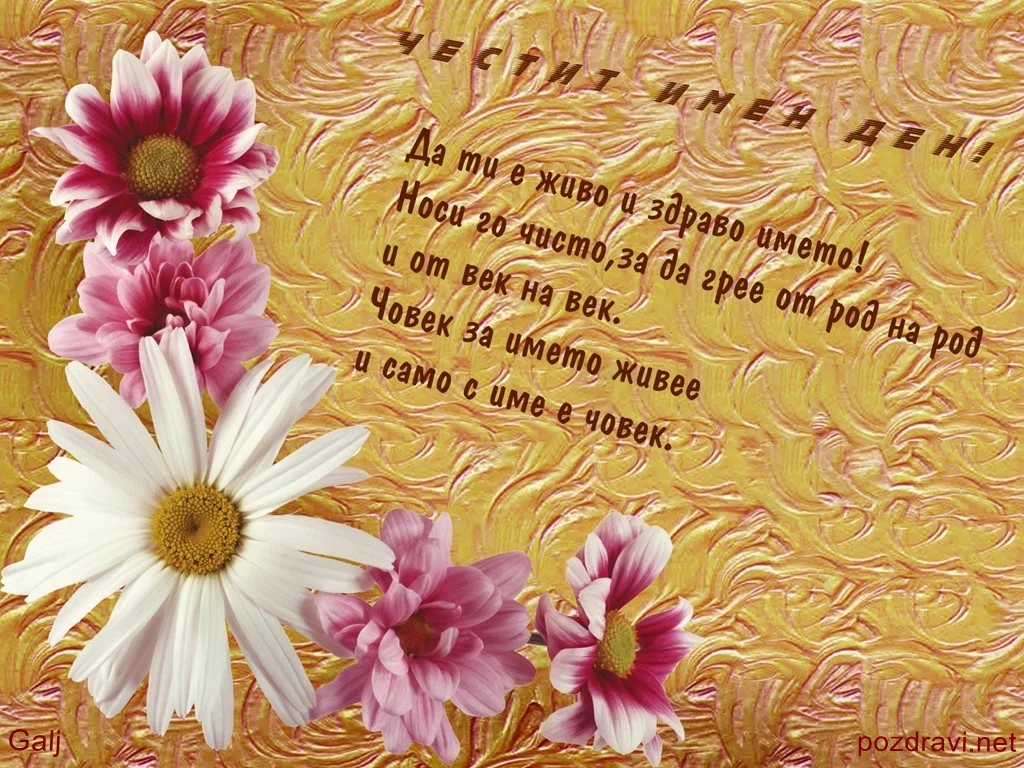 ЧЕСТИТ ИМЕН ДЕН!
Да ти е живо и здраво името!
Носи го чисто,за да грее от род на род
и от век на век.
Човек за името живее
и само с име е човек.
Galj
pozdravi.net